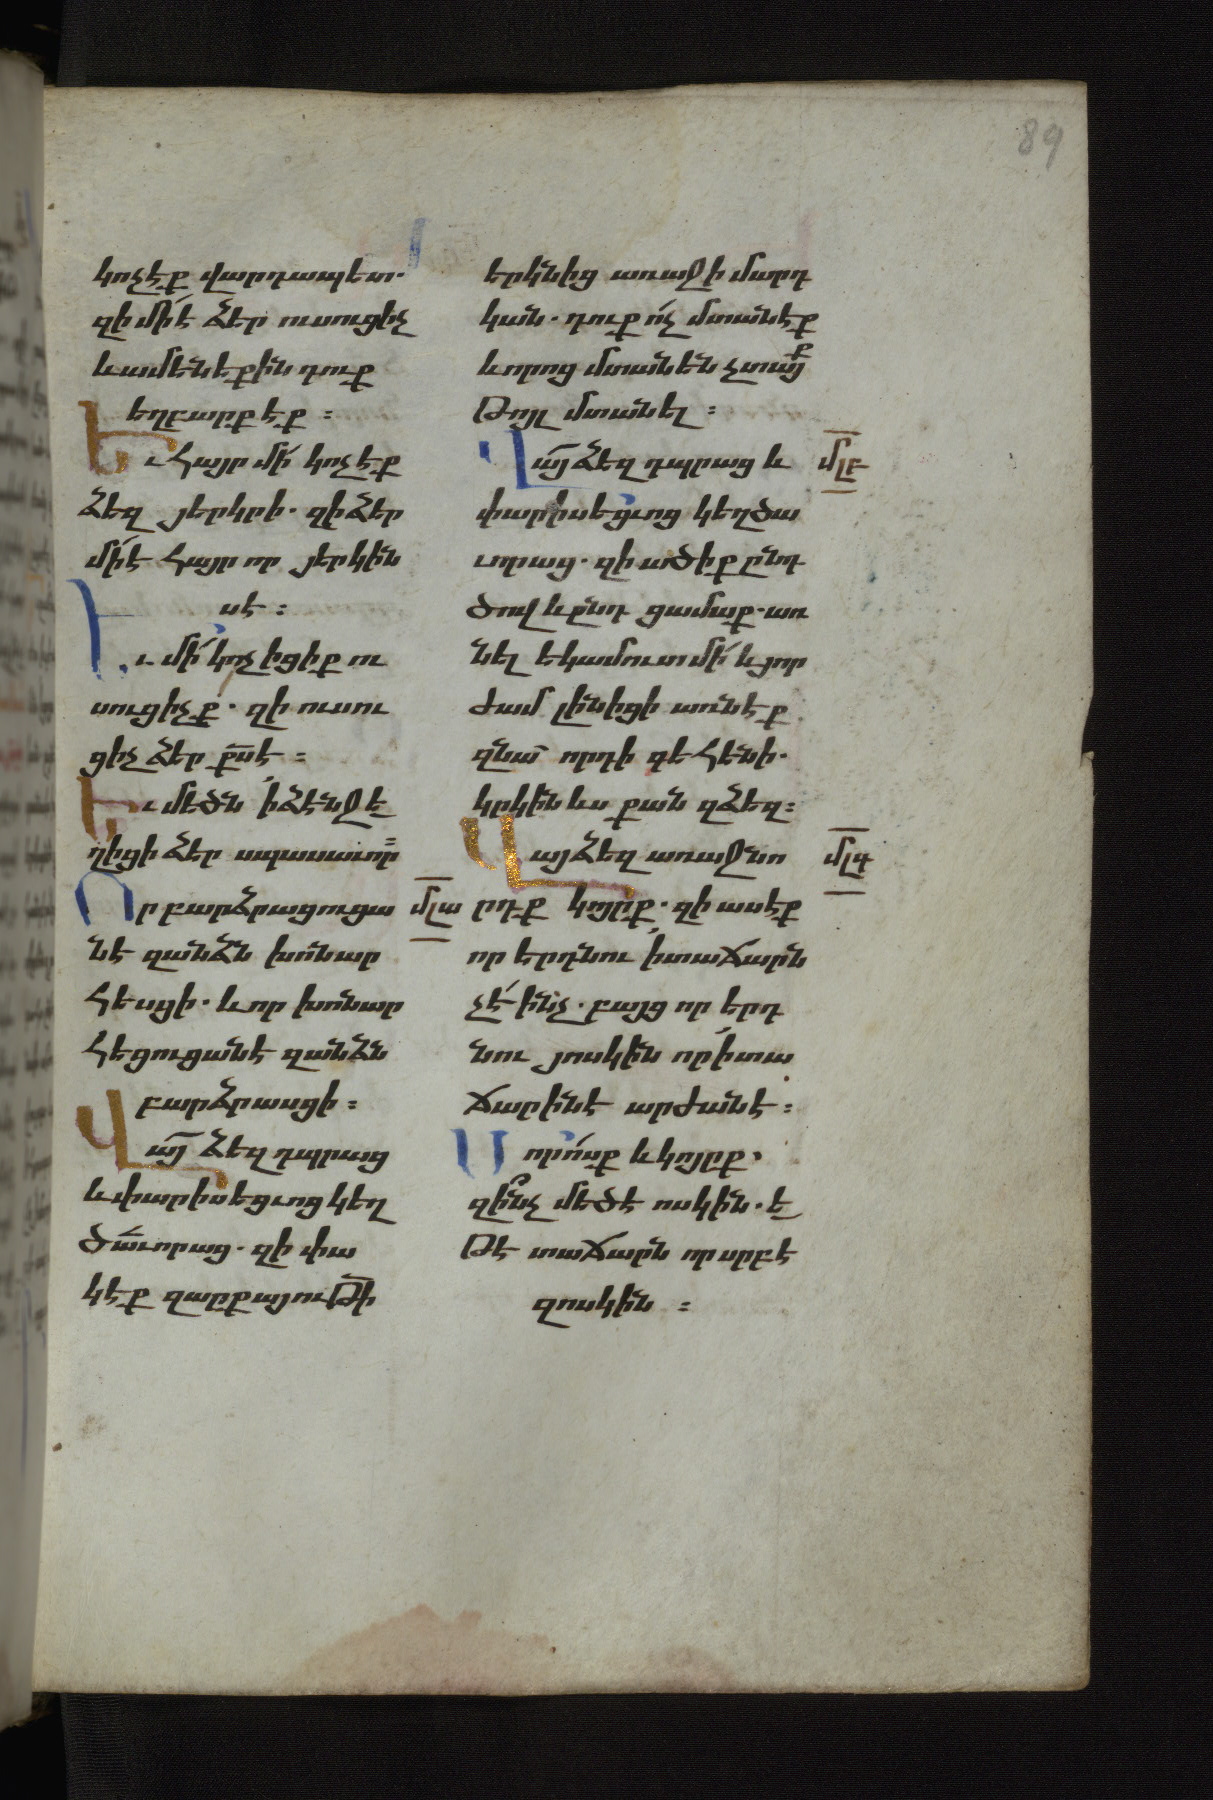 89
կոչէք վարդապետ.
զի մի է ձեր ուսուցիչ
և ամենեքին դուք
եղբարք էք :
Եւ հայր մի կոչէք
ձեզ յերկրի. զի ձեր
մի է հայր որ յերկին
սէ :
Եւ մի կոչիցիք ու
սուցիչք. զի ուսու
ցիչ ձեր ք̅ս է :
Եւ մեծն ի ձէնջ ե
ղիցի ձեր սպասաւոր
Որ բարձրացուցա մլա
նէ զանձն խոնար
հեսցի. և որ խոնար
հեցուցանէ զանձն
բարձրասցի :
Վայ̅ ձեզ դպրաց
և փարիսեցւոց կեղ
ծաւորաց. զի փա
կէք զարքայութի̅
երկնից առաջի մարդ
կան. դուք ոչ մտանէք
և որոց մտանեն չտայք
թոյլ մտանել :
Վայ̅ ձեզ դպրաց և մլբ
փարիսեցւոց կեղծա
ւորաց. զի ածիք ընդ
ծով և ընդ ցամաք. առ
նել եկամուտ մի և յոր
ժամ լինիցի առնէք
զնա որդի գեհենի.
կրկին ևս քան զձեզ :
Վայ ձեզ առաջնո մլգ
րդք կոյրք. զի ասէք
որ երդնու ի տաճարն
չէ ինչ. բայց որ երդ
նու յոսկին որ ի տա
ճարին է արժան է :
Մորոսք և կոյրք.
զինչ մեծ է ոսկին. ե
թէ տաճարն որ սրբէ
զոսկին :